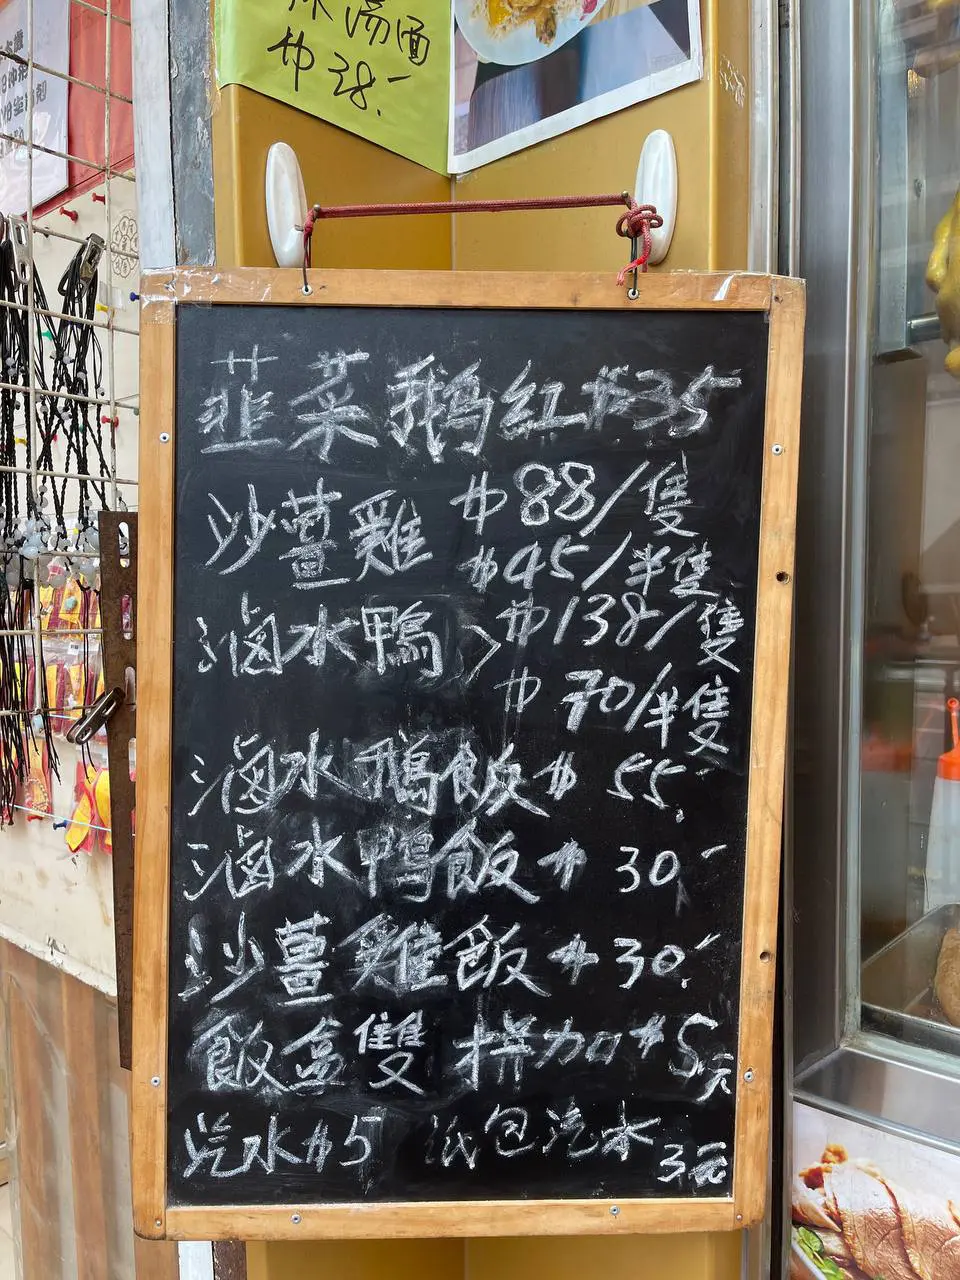 湯面
$38.-
韮菜鵝紅$35
沙薑雞 $88/隻
$45/半隻
滷水鴨>$138/隻
$70/半隻
滷水鵝飯$55.-
滷水鴨飯$30.-
沙薑雞飯$30.-
飯盒雙拼加$5元
汽水$5 纸包汽水3元